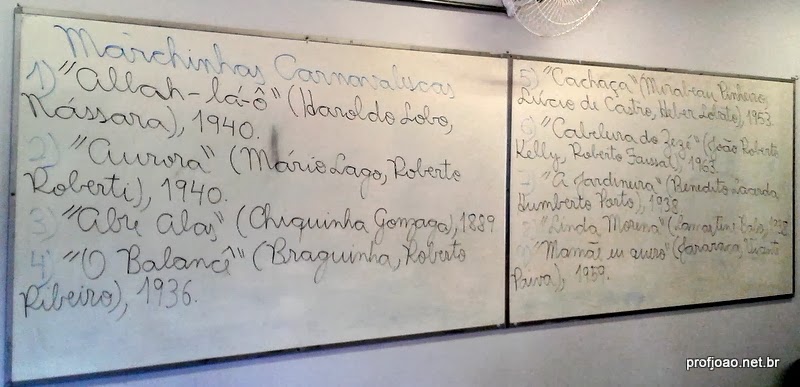 Marchinhas Carnavaliscas
1) "Allah-lá-ô" (Haroldo Lobo,
Nássara), 1940.
2) "Aurora" (Mário Lago, Roberto
Roberti), 1940.
3) "Abre Alas" (Chiquinha Gonzaga), 1889
4) "O Balancê" (Braguinha, Roberto
Ribeiro), 1936.
5) "Cachaça" (Mirabeau Pinheiro,
Lúcio de Castro, Heber Lobato), 1953.
6) "Cabeleira do Zezé" (João Roberto
Kelly, Roberto Faissal), 1963.
7) "A Jardineira" (Benedito Lacerda,
Humberto Porto), 1938.
8) "Linda Morena" (Lamartine Babo),
9) "Mamãe eu quero" (Jararaca, Vicente
Paiva), 1959.
profjoao.net.br